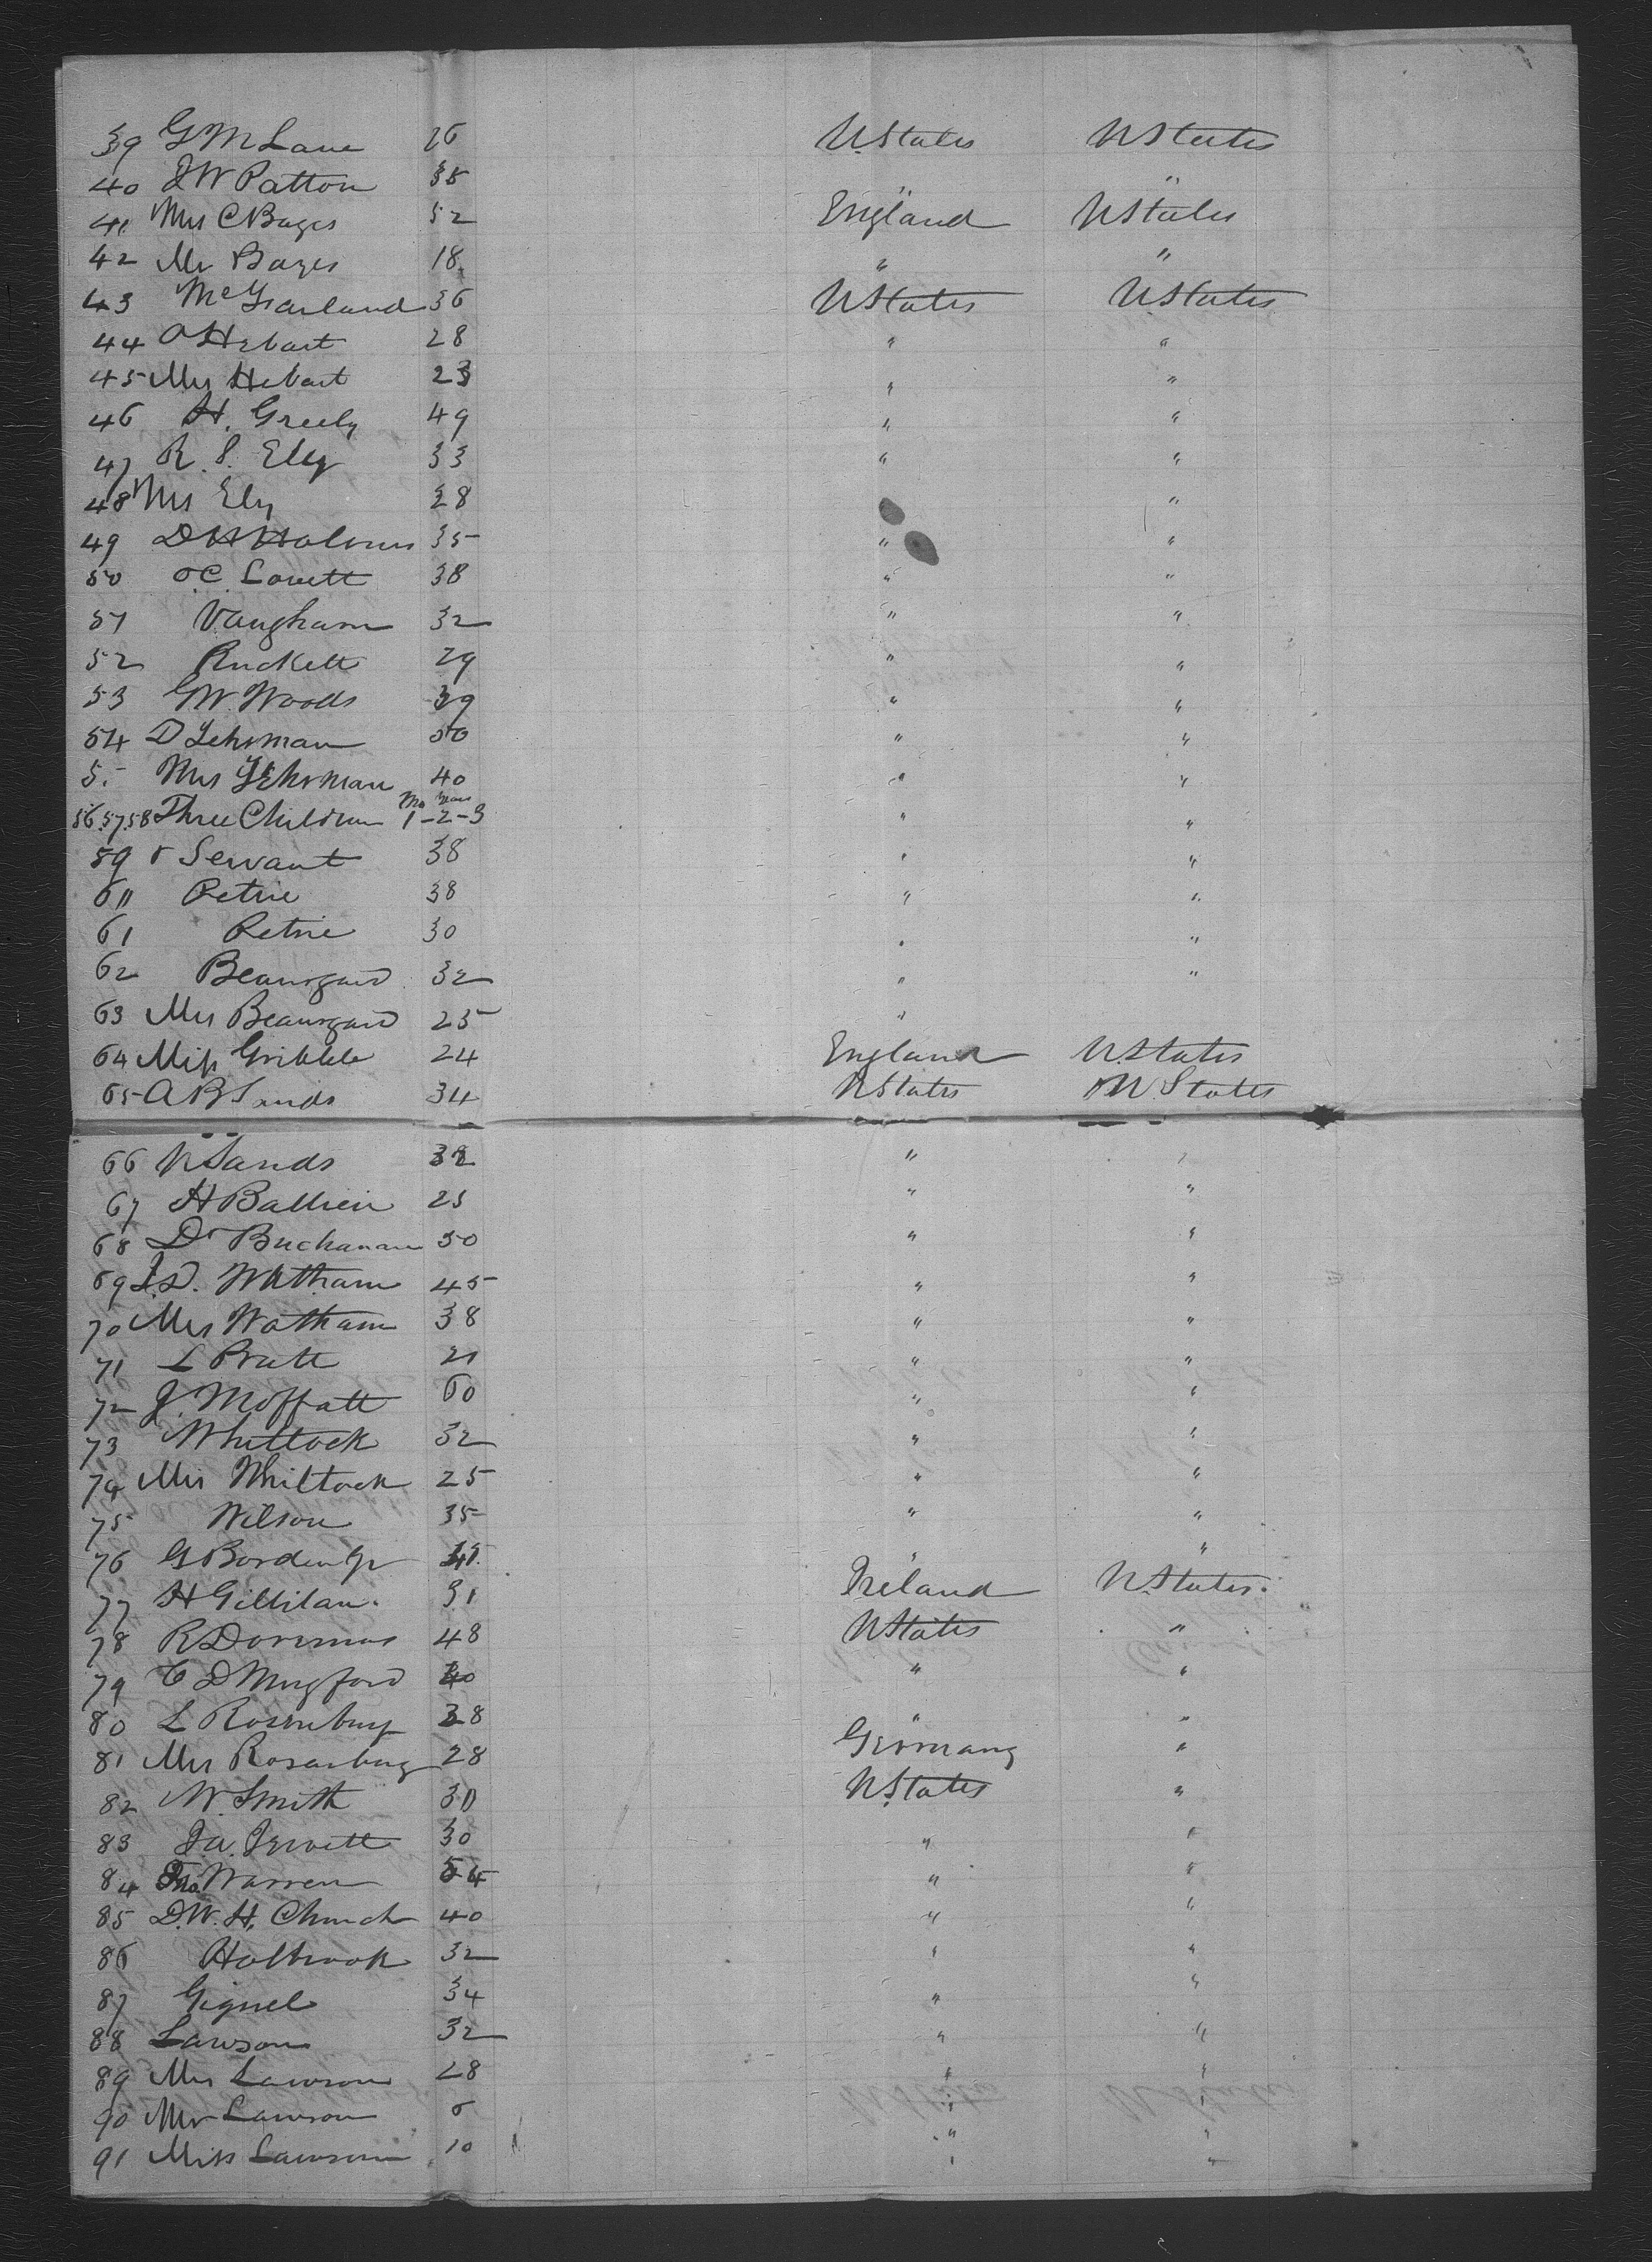 39 G M Lane 26 U.States UStates
40 J W Patton 35 " "
41 Mrs C Bages 52 England UStates
42 Mr Bages 18 " "
43 McFarland 36 UStates UStates
44 O Hebart 28 " "
45 Mrs Hebart 23 " "
46 H. Greely 49 " "
47 R. S. Ely 33 " "
48 Mrs Ely 28 "
49 D H Holmes 35 " "
50 O.C. Lovett 38 " "
51 Vaugham 32 " "
52 Ruckett 29 " "
53 G W. Woods 39 " "
54 D Lehman 50 " "
55 Mrs Lehman 40 " "
56.57.58 Three Children 1-2-3 " "
59 & Servant 38 " "
60 Petrie 38 " "
61 Petrie 30 " "
62 Beauregard 32 " "
63 Mrs Beauregard 25 "
64 Miss Gribble 24 England U.States
65 A B Sands 34 UStates U.States
66 Sands " "
67 H Ballien 25 " "
68 Dr Buchanan 50 " "
69 Watham 45 " "
70 Mrs Watham 38 " "
71 L Pratt 21 " "
72 J. Moffatt 60 " "
73 Whittock 32 " "
74 Mrs Whittock 25 " "
75 Wilson 35 " "
76 G Borden Jr " "
77 H Gillilan. 31 Ireland U.States.
78 R Doremus 48 UStates "
79 C D Mugford 40 " "
80 L Rosenburg 38 " "
81 Mrs Rosenburg 28 Germany "
82 W. Smith 30 U.States "
83 J.A. Jewett 30 " "
84 Thos Warren 54 " "
85 D.W.H. Church 40 " "
86 Holbrook 32 " "
87 Gignel 34 " "
88 Lawson 32 " "
89 Mrs Lawson 28 " "
90 Mr Lawson 6 " "
91 Miss Lawson 10 " "